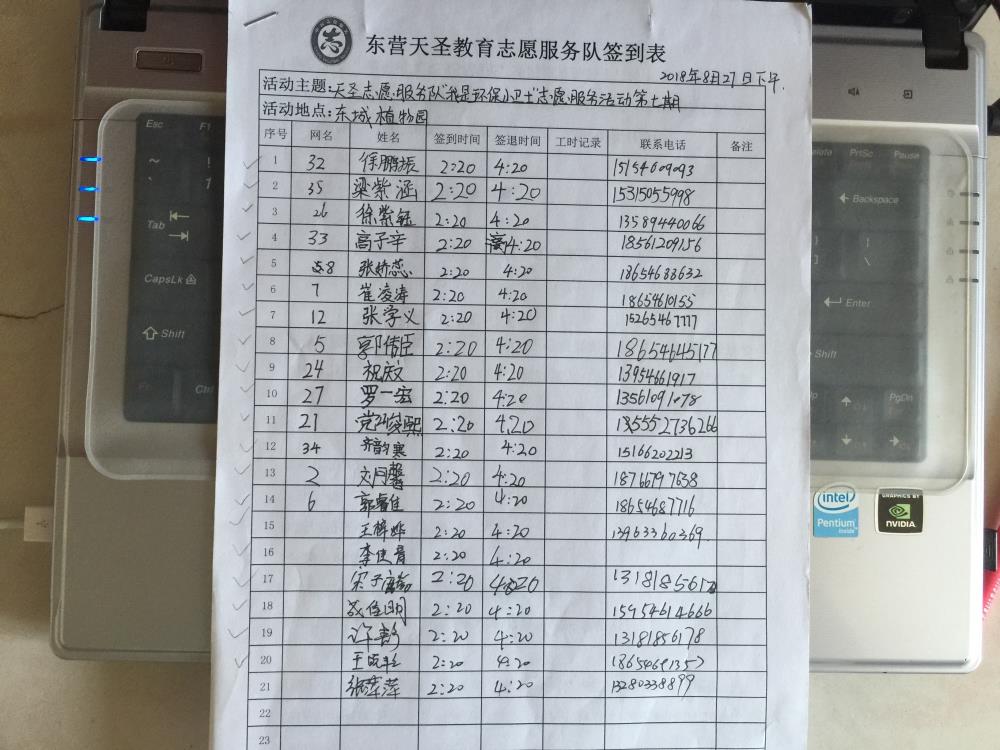 志
东营天圣教育志愿服务队签到表
2018年8月27日下午
活动主题:天圣志愿服务队"我是环保小卫士"志愿服务活动第七期
活动地点:东城植物园
序号 网名 姓名 签到时间 签退时间 工时记录 联系电话 备注
1 32 徐鹏振 2:20 4:20 15154609093
2 35 梁紫涵 2:20 4:20 15315055998
3 26 徐紫钰 2:20 4:20 13589440066
4 33 高子辛 2:20 4:20 18561209156
5 张娇蕊 2:20 4:20 18654683632
6 7 崔凌涛 2:20 4:20 18654610155
7 12 张学义 2:20 4:20 15265467777
8 5 郭倩臣 2:20 4:20 18654645177
9 24 祝文 2:20 4:20 13954661917
10 27 罗一宏 2:20 4:20 13561091078
11 21 2:20 4:20
12 34 齐韵寒 2:20 4:20 15166202213
13 2 刘月馨 2:20 4:20 18766797638
14 6 郭睿佳 2:20 4:20 18654687716
15 王梓烨 2:20 4:20 13963360369
16 李佳 2:20 4:20
17 宋子 2:20 4:20
18 2:20 4:20 15954614666
19 许静 2:20 4:20 13181856178
20 王晓 2:20 4:20 18654691357
21 张萍萍 2:20 4:20 13280338899
22
23
Esc F1
~ !
Tab
CapsLk
Shift
Ctrl
PrtSc Pause
Backspace
Enter
Shift
PgDn
intel
Pentium
inside
GRAPHICS BY
NVIDIA